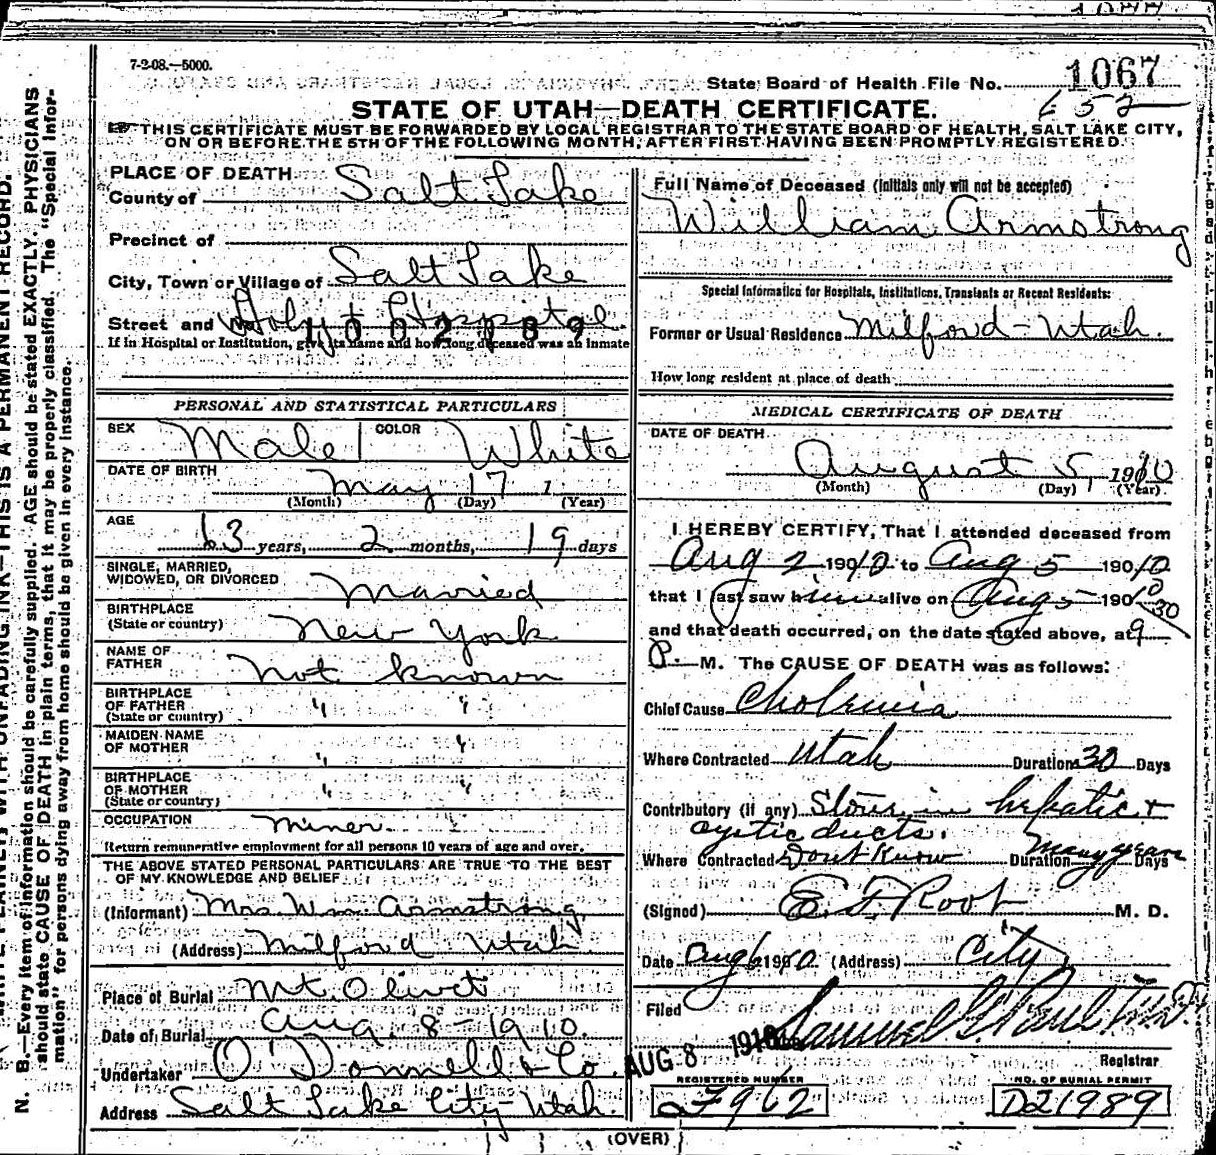 7-2-08.—5000.
State Board of Health File No. 1067
652
STATE OF UTAH—DEATH CERTIFICATE.
THIS CERTIFICATE MUST BE FORWARDED BY LOCAL REGISTRAR TO THE STATE BOARD OF HEALTH, SALT LAKE CITY,
ON OR BEFORE THE 5TH OF THE FOLLOWING MONTH, AFTER FIRST HAVING BEEN PROMPTLY REGISTERED.
PLACE OF DEATH
County of Salt Lake
Precinct of
City, Town or Village of Salt Lake
Street and No. Holy + Hospital
If in Hospital or Institution, give its name and how long deceased was an inmate
PERSONAL AND STATISTICAL PARTICULARS
SEX Male COLOR White
DATE OF BIRTH May 17 1
(Month) (Day) (Year)
AGE 63 years, 2 months, 19 days
SINGLE, MARRIED,
WIDOWED, OR DIVORCED Married
BIRTHPLACE
(State or country) New York
NAME OF
FATHER not known
BIRTHPLACE
OF FATHER " "
(State or country)
MAIDEN NAME
OF MOTHER " "
BIRTHPLACE
OF MOTHER " "
(State or country)
OCCUPATION miner
Return remunerative employment for all persons 10 years of age and over.
THE ABOVE STATED PERSONAL PARTICULARS ARE TRUE TO THE BEST
OF MY KNOWLEDGE AND BELIEF
(Informant) Mrs. Wm. Armstrong
(Address) Milford Utah
Place of Burial Mt. Olivet
Date of Burial Aug. 8-1910.
Undertaker O'Donnell & Co.
Address Salt Lake City Utah.
Full Name of Deceased (Initials only will not be accepted)
William Armstrong
Special Information for Hospitals, Institutions, Transients or Recent Residents:
Former or Usual Residence Milford-Utah.
How long resident at place of death
MEDICAL CERTIFICATE OF DEATH
DATE OF DEATH
August 5, 1910
(Month) (Day) (Year)
I HEREBY CERTIFY, That I attended deceased from
Aug 2, 1910 to Aug 5 1910
that I last saw him alive on Aug 5 1910
and that death occurred, on the date stated above, at 9 30
P. M. The CAUSE OF DEATH was as follows:
Chief Cause Cholemia
Where Contracted Utah Duration 30 Days
Contributory (if any) Stones in hepatic +
cystic ducts.
Where Contracted Don't Know Duration many years Days
(Signed) E. F. Root M. D.
Date Aug 6 1910 (Address) City
Filed AUG 8 1910 Samuel G. Paul M.D.
Registrar
REGISTERED NUMBER
7962
NO. OF BURIAL PERMIT
D21989
(OVER)
N. B.—Every item of information should be carefully supplied. AGE should be stated EXACTLY. PHYSICIANS
should state CAUSE OF DEATH in plain terms, that it may be properly classified. The "Special Infor-
mation" for persons dying away from home should be given in every instance.